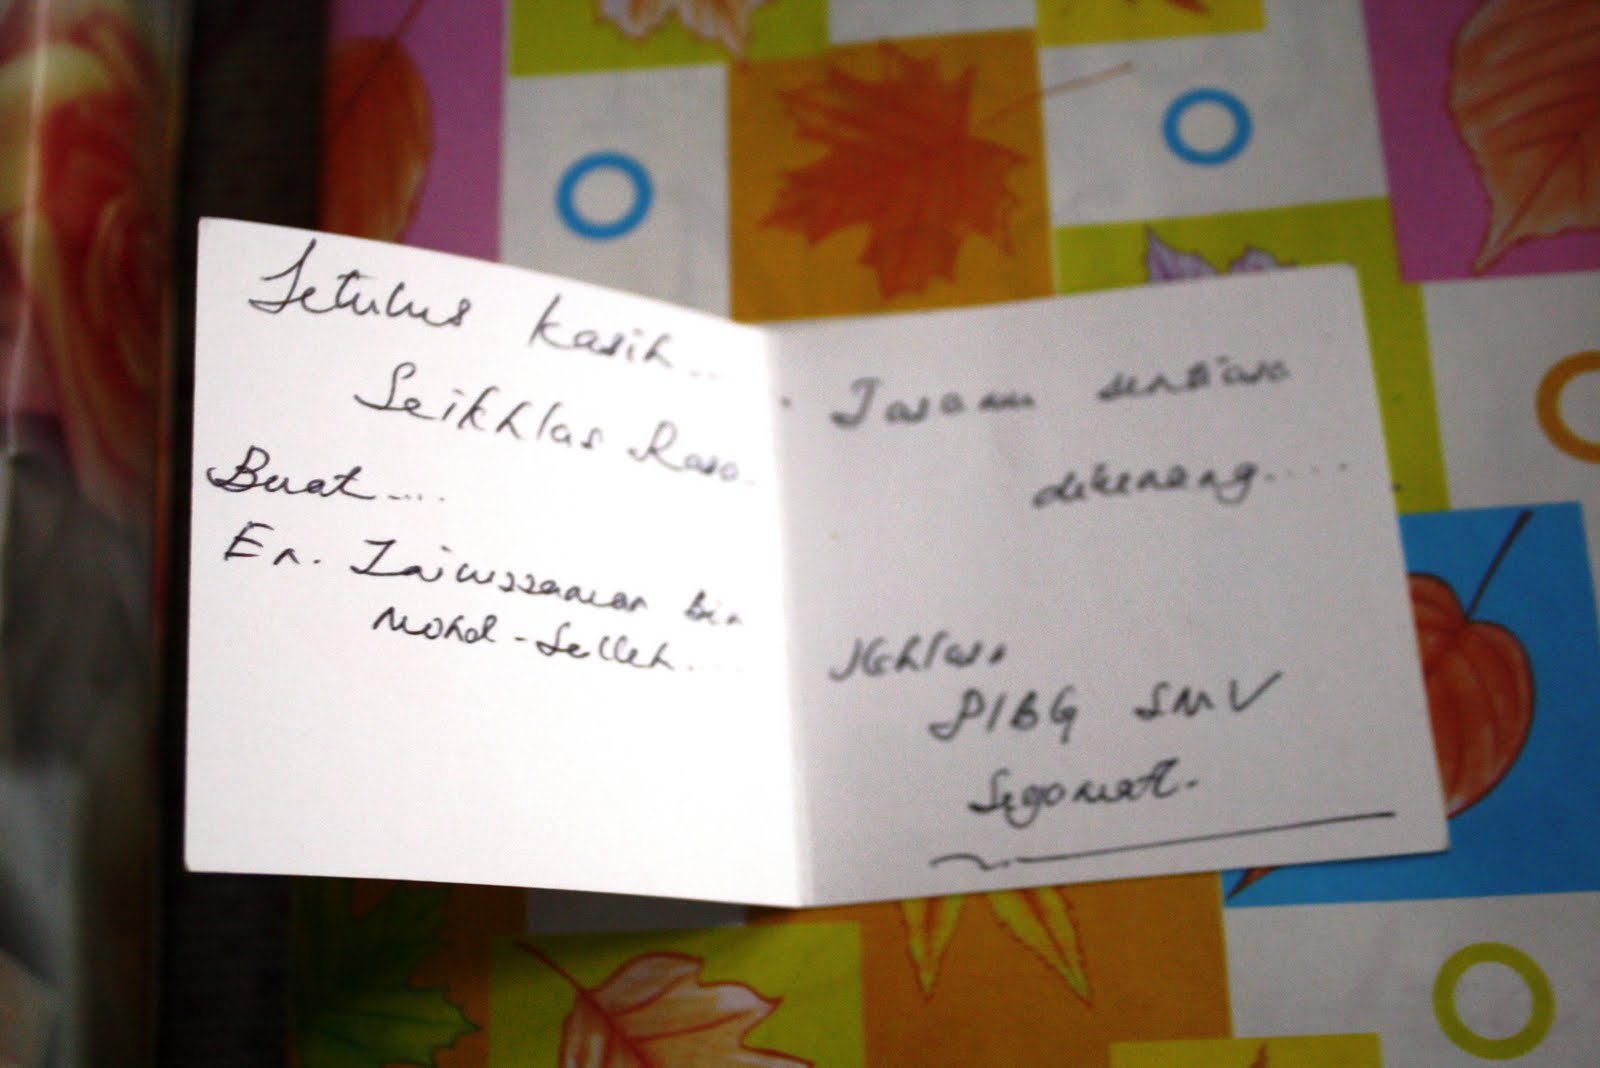 Setulus kasih...
Seikhlas Rasa.
Buat....
En. Zaiwssaman bin
Mohd-Selleh....
Jasamu sentiasa
dikenang.....
Ikhlas,
PIBG SMV
Segamat.